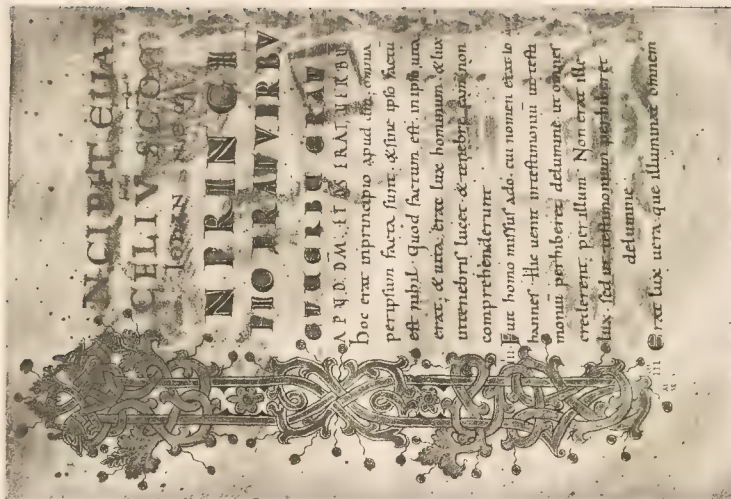 NCIPIT EUAN
CELIV SCDM
IOHANNES
N PRINCI
PIO ERAT VERBV
ET UERBU ERAT
APUD DM ET DS ERAT UERBU
hoc erat inprincipio apud dm omnia
peripsum facta sunt & sine ipso factu
est nihil Quod factum est inipso uita
erat & uita erat lux hominum & lux
intenebris lucet & tenebre eam non
comprehenderunt
Fuit homo missus ado cu nomen erat Io
hannes Hic uenit intestimoniu ut testi
moniu perhiberet delumine ut omnes
crederent per illum Non erat ille
lux sed ut testimonium perhiberet
delumine
III Erat lux uera que illuminat omnem